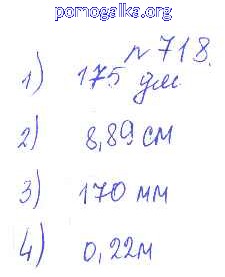 pomogalka.org
№ 718.
1) 175 дм
2) 8,89 см
3) 170 мм
4) 0,22м